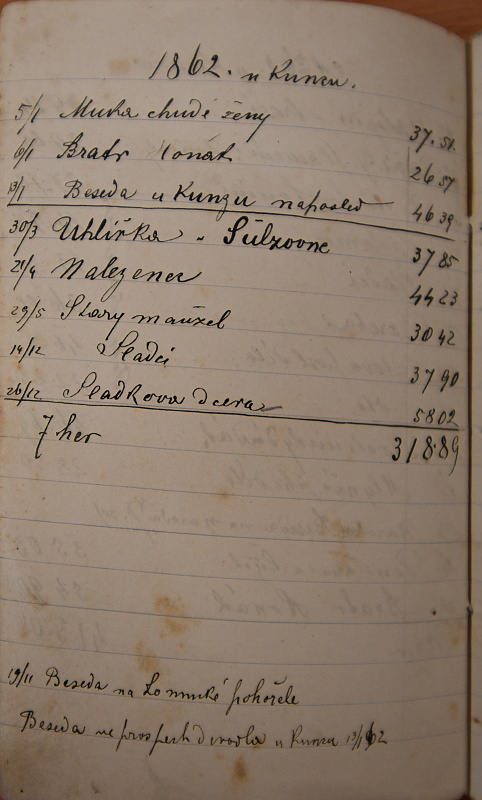 1862. u Kunzu.
5/1 Muka chudé ženy 37.51.
6/1 Bratr Honák 26 57
13/1 Beseda u Kunzu naposled 46 39
30/3 Uhlířka " Sülzovně 37 85
21/4 Nalezenec 44 23
29/5 Stary manžel 30 42
14/12 Sladci 37 90
26/12 Sladkova dcera 58 02
7 her 318.89
19/11 Beseda na Lomnické pohořele
Beseda ve prospěch divadla u Kunzu 13/1 62